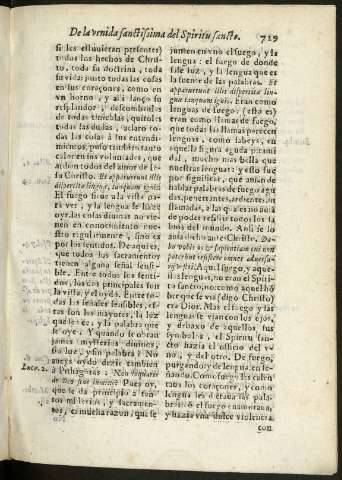 De la venida sanctissima del Spiritu sancto.
719
si les estuuieran presentes)
todos los hechos de Christo,
toda su doctrina, toda
su vida: junto todas las cosas
en sus coraçones, como en
vn horno, y alli lanço su
resplandor, desembolos
de todas tinieblas, quitoles
todas las dudas, aclaro todas
las cosas à sus entendimientos,
puso tambien tanto
calor en sus voluntades, que
Iesu Christo. Et apparuerunt illis
dispertitæ linguæ, tanquam ignis.
El fuego sirue a la vista para
ver, y la lengua se hace
oyr. las cosas diuinas no vienen
en conocimiento nuestro
regularmente, sino es
por los sentidos. De aqui es,
que todos los sacramentos
tienen alguna señal sensible.
Entre todos los sentidos,
los dos principales son
la vista, y el oydo. Entre todas
las señales sensibles, estas
son las mayores, la luz
que se vee: y la palabra que
se oye. Y quando se obran
jamas mysterios diuinos,
sin luz, y sin palabra? No
aueys oydo dezir tambien
à Pithagoras: Neo loquaris
de Deo sine lumine? Pues oy,
que se da principio à tantos
misterios, y sacramentos,
cō mucha razon, que se
Luca. 2.
jumen en vno el fuego, y la
lengua: el fuego de donde
sale luz, y la lengua que es
la fuente de las palabras. Et
apparuerunt illis dispertitæ linguæ
tanquam ignis. Eran como
lenguas de fuego: (esto es)
eran como llamas de fuego,
que todas las llamas parecen
lenguas, como sabeys, en
aquella figura aguda piramidal,
mucho mas bella que
nuestras lenguas: y esto fue
por significar, que auian de
hablar palabras de fuego agudas,
penetrantes, ardientes, inflamadas,
a las quales no auia
de poder resistir todos los sabios
del mundo. Ansi se lo
auia dicho ante Christo. Dabo
vobis os & sapientiam cui non
poterunt resistere omnes aduersarij
vestri. Aqui fuego, y aquellas
lenguas, no eran el Spiritu
sancto, no: como aquel hōbre
que se via (digo Christo)
era Dios. Mas el fuego y las
lenguas se vian con los ojos,
y debaxo de aquellos sus
symbolos, el Spiritu sancto
hazia el officio del vno,
y del otro. De fuego,
purgando: y de lengua, enseñando.
Como fuego les calentaua
los coraçones, y como
lengua les dictaua las palabras:
o como fuego inflamaua,
y hazia vna dulce violencia
con